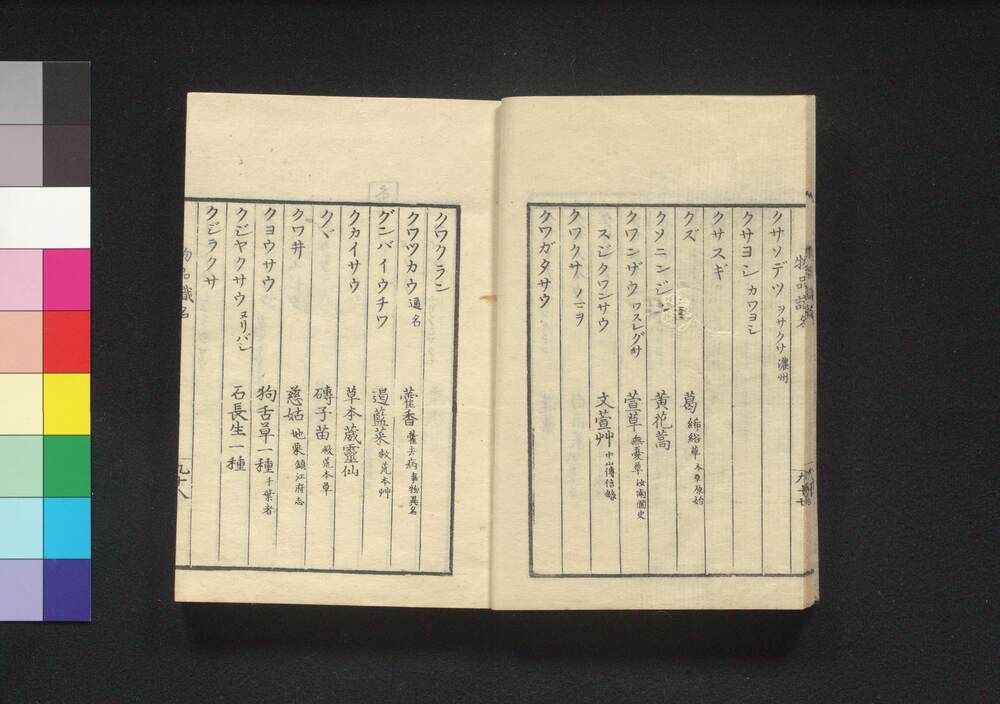 物品識名
クサソデツ ヲサクサ 濃州
クサヨシ カワヨシ
クサスギ
クズ 葛 絺綌草 本草原始
クソニンジン 黄花蒿
クワンザウ ワスレグサ 萱草 無憂草 汝南圃史
スジクワンサウ 文萱艸 中山傳信録
クワクサ ノニヲ
クワガタサウ
九十七
クワクラン
クワツカウ 通名 藿香 藿去病 事物異名
グンバイウチワ 遏藍菜 救荒本艸
クカイサウ 草本葳靈仙
クヾ 磚子苗 救荒本草
クワ井 慈姑 地栗 鎮江府志
クヨウサウ 狗舌草一種 千葉者
クジヤクサウ ヌリバシ 石長生一種
クジラクサ
物品識名
九十八